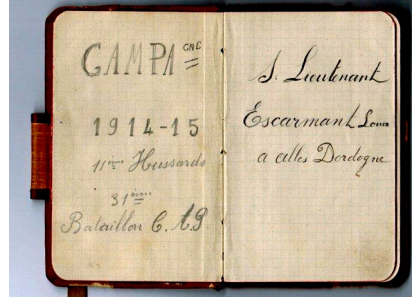 CAMPAGNE
1914-15
11ème Hussards
31ème
Bataillon C. A. P
S. Lieutenant
Escarmant Louis
a celles Dordogne